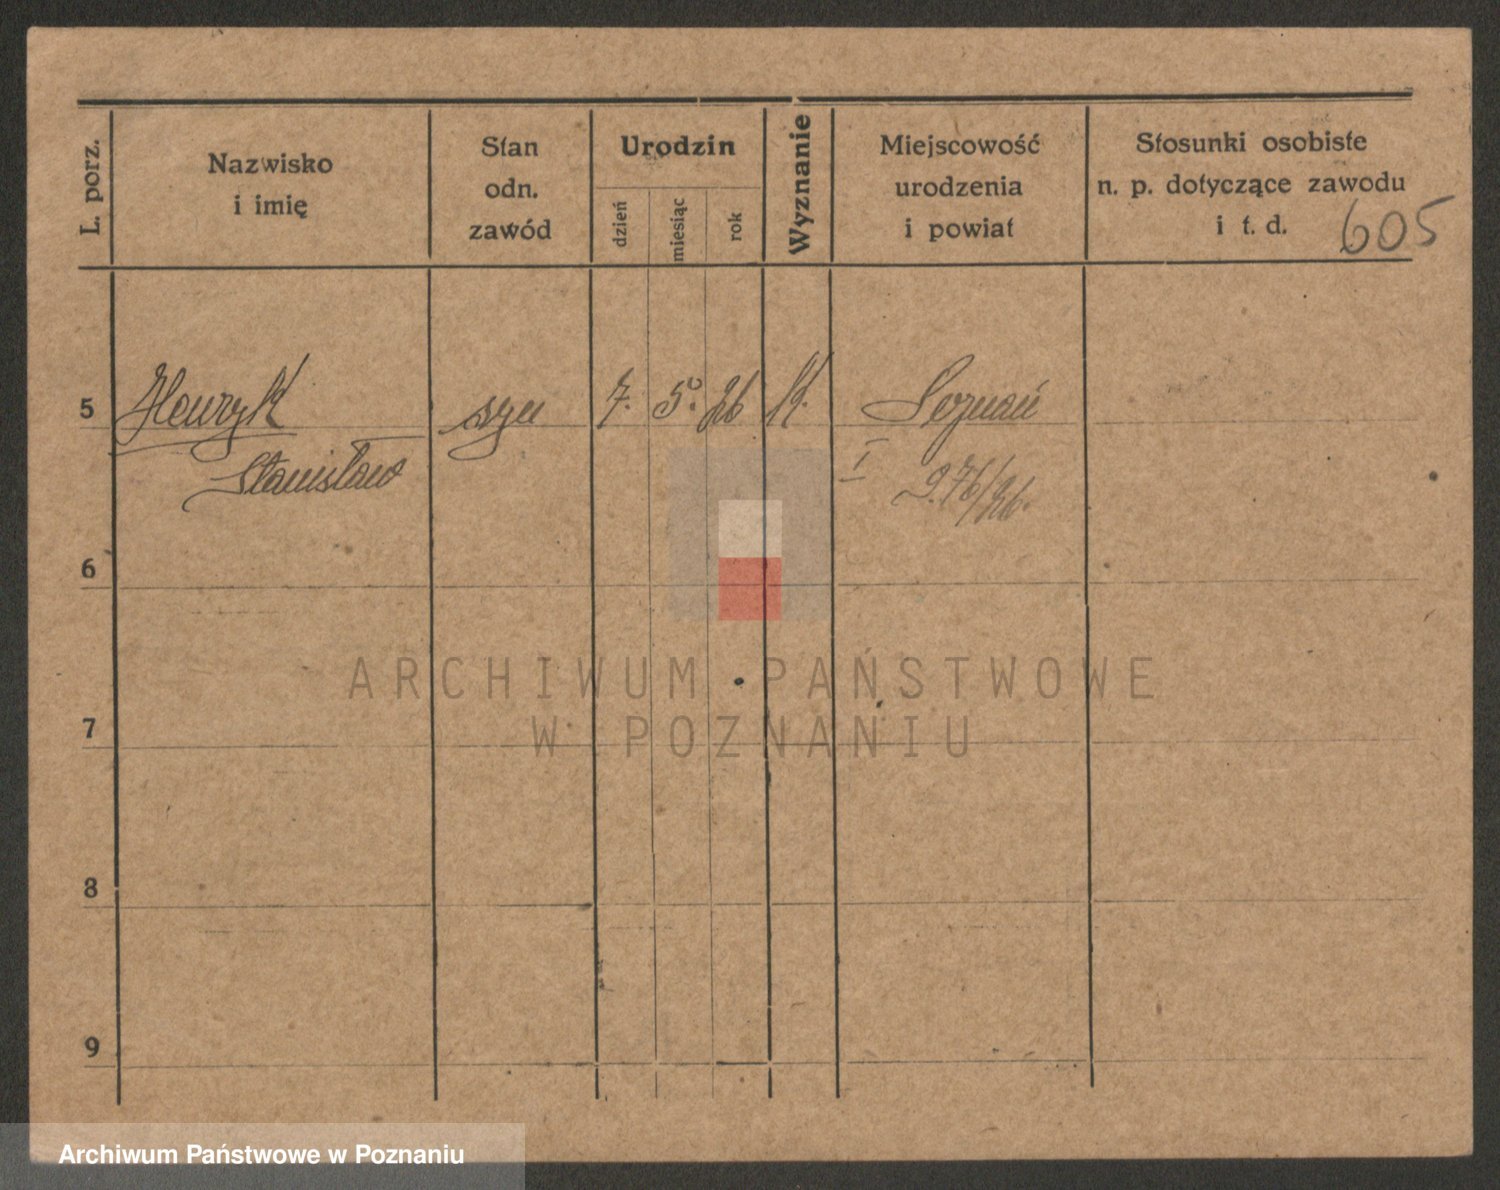 L. porz.
Nazwisko
i imię
Stan
odn.
zawód
Urodzin
dzień
miesiąc
rok
Wyznanie
Miejscowość
urodzenia
i powiat
Stosunki osobiste
n. p. dotyczące zawodu
i t. d.
605
5 Henryk syn 7. 5. 26 K. Poznań
Stanisław I 976/26.
6
7
8
9
ARCHIWUM PAŃSTWOWE
W POZNANIU
Archiwum Państwowe w Poznaniu